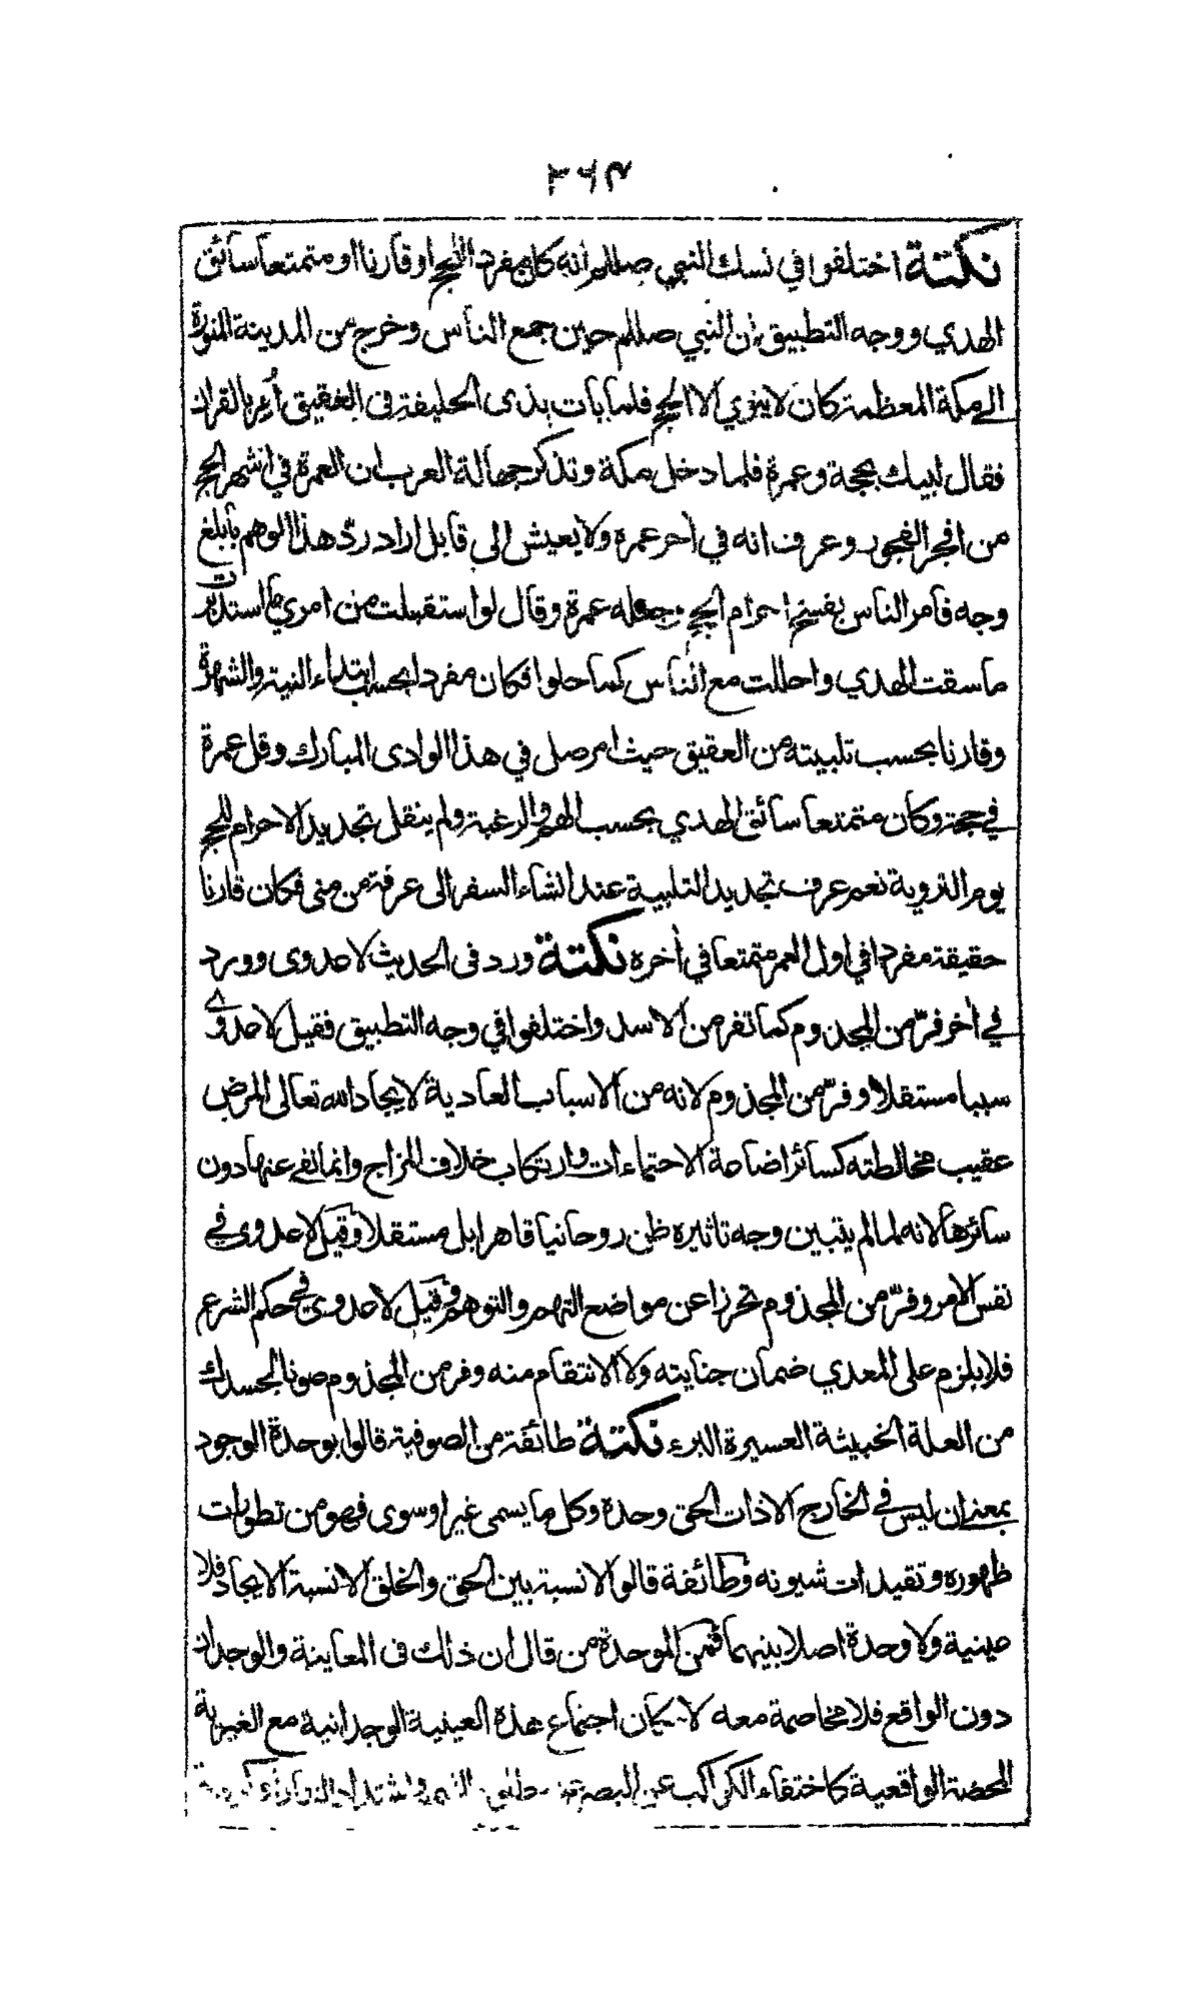 ٢٦٣
نكتة اختلفوا في نسك النبي صللم انه كان مفرد الحج او قارنا او متمتعا سائق
الهدي ووجه التطبيق ان النبي صللم حين جمع الناس وخرج من المدينة المنورة
الى مكة المعظمة كان لا ينوي الا الحج فلما بات بذى الحليفة فى العقيق أمر بالقران
فقال لبيك بحجة وعمرة فلما دخل مكة وتذكر جهالة العرب ان العمرة في اشهر الحج
من افجر الفجور وعرف انه في أخر عمره ولا يعيش الى قابل اراد ردّ هذا الوهم بابلغ
وجه فأمر الناس بفسخ احرام الحج وجعله عمرة وقال لو استقبلت من امري ما استدبرت
ما سقت الهدي واحللت مع الناس كما حلوا فكان مفردا بحسب ابتداء النية والشهرة
وقارنا بحسب تلبيته من العقيق حيث امر صل في هذا الوادى المبارك وقل عمرة
في حجة وكان متمتعا سائق الهدي بحسب الهم والرغبة ولم ينقل تجديد الاحرام للحج
يوم التروية نعم عرف تجديد التلبية عند انشاء السفر الى عرفة من منى فكان قارنا
حقيقة مفردا في اول العمر متمتعا في أخره نكتة ورد فى الحديث لا عدوى وورد
في أخر فرّ من المجذوم كما تفر من الاسد واختلفوا في وجه التطبيق فقيل لا عدوى
سببا مستقلا وفرّ من المجذوم لانه من الاسباب العادية لايجاد الله تعالى المرض
عقيب مخالطته كسائر اضاعة الاحتماءات وارتكاب خلاف المزاج وانما نفى عنها دون
سائرها لانه لما لم يتبين وجه تاثيره ظن روحانيا قاهرا بل مستقلا وقيل لا عدوى في
نفس الامر وفرّ من المجذوم تحرزا عن مواضع التهم والتوهم وقيل لا عدوى في حكم الشرع
فلا يلزم على المعدي ضمان جنايته ولا الانتقام منه وفر من المجذوم صونا لجسدك
من العلة الخبيثة العسيرة البرء نكتة طائفة من الصوفية قالوا بوحدة الوجود
بمعنى ان ليس في الخارج الا ذات الحق وحده وكل ما يسمى غيرا وسوى فهو من تطورات
ظهوره وتقيدات شيونه وطائفة قالوا لا نسبة بين الحق والخلق الا نسبة الايجاد فلا
عينية ولا وحدة اصلا بينهما فمن الموحدة من قال ان ذلك فى المعاينة والوجدان
دون الواقع فلا مخاصمة معه لامكان اجتماع هذه العينية الوجدانية مع الغيرية
المحضة الواقعية كاختفاء الكواكب عن البصر عند طلوع